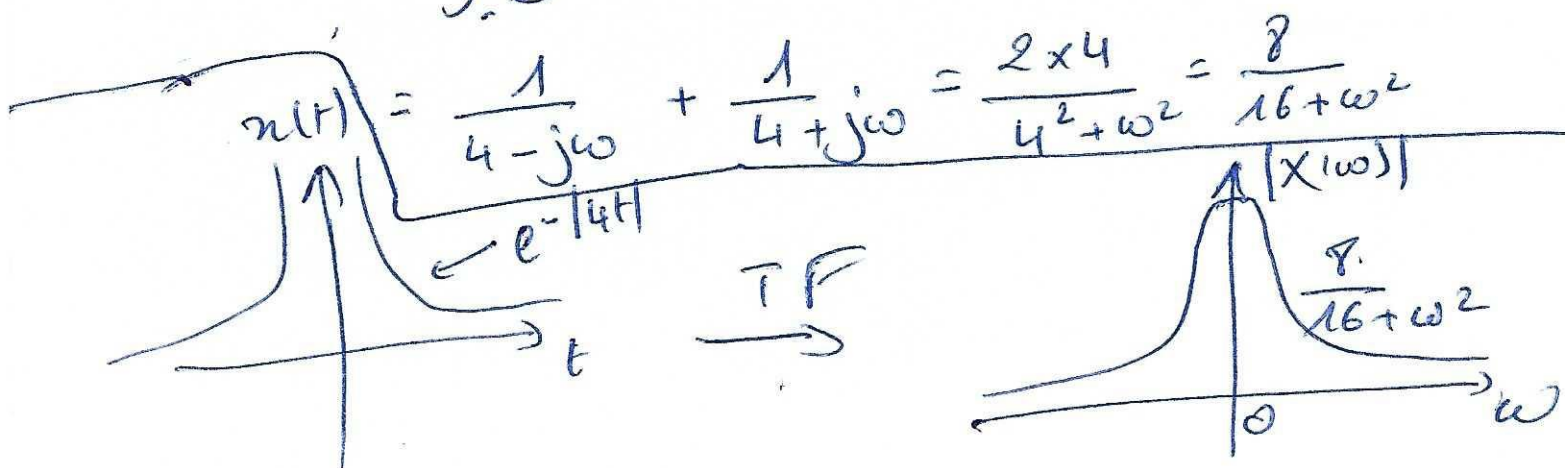 x(t) = 1/(4 - jω) + 1/(4 + jω) = (2 x 4)/(4² + ω²) = 8/(16 + ω²)
|X(ω)|
e^-|4t|
TF
8/(16 + ω²)
t
0
ω